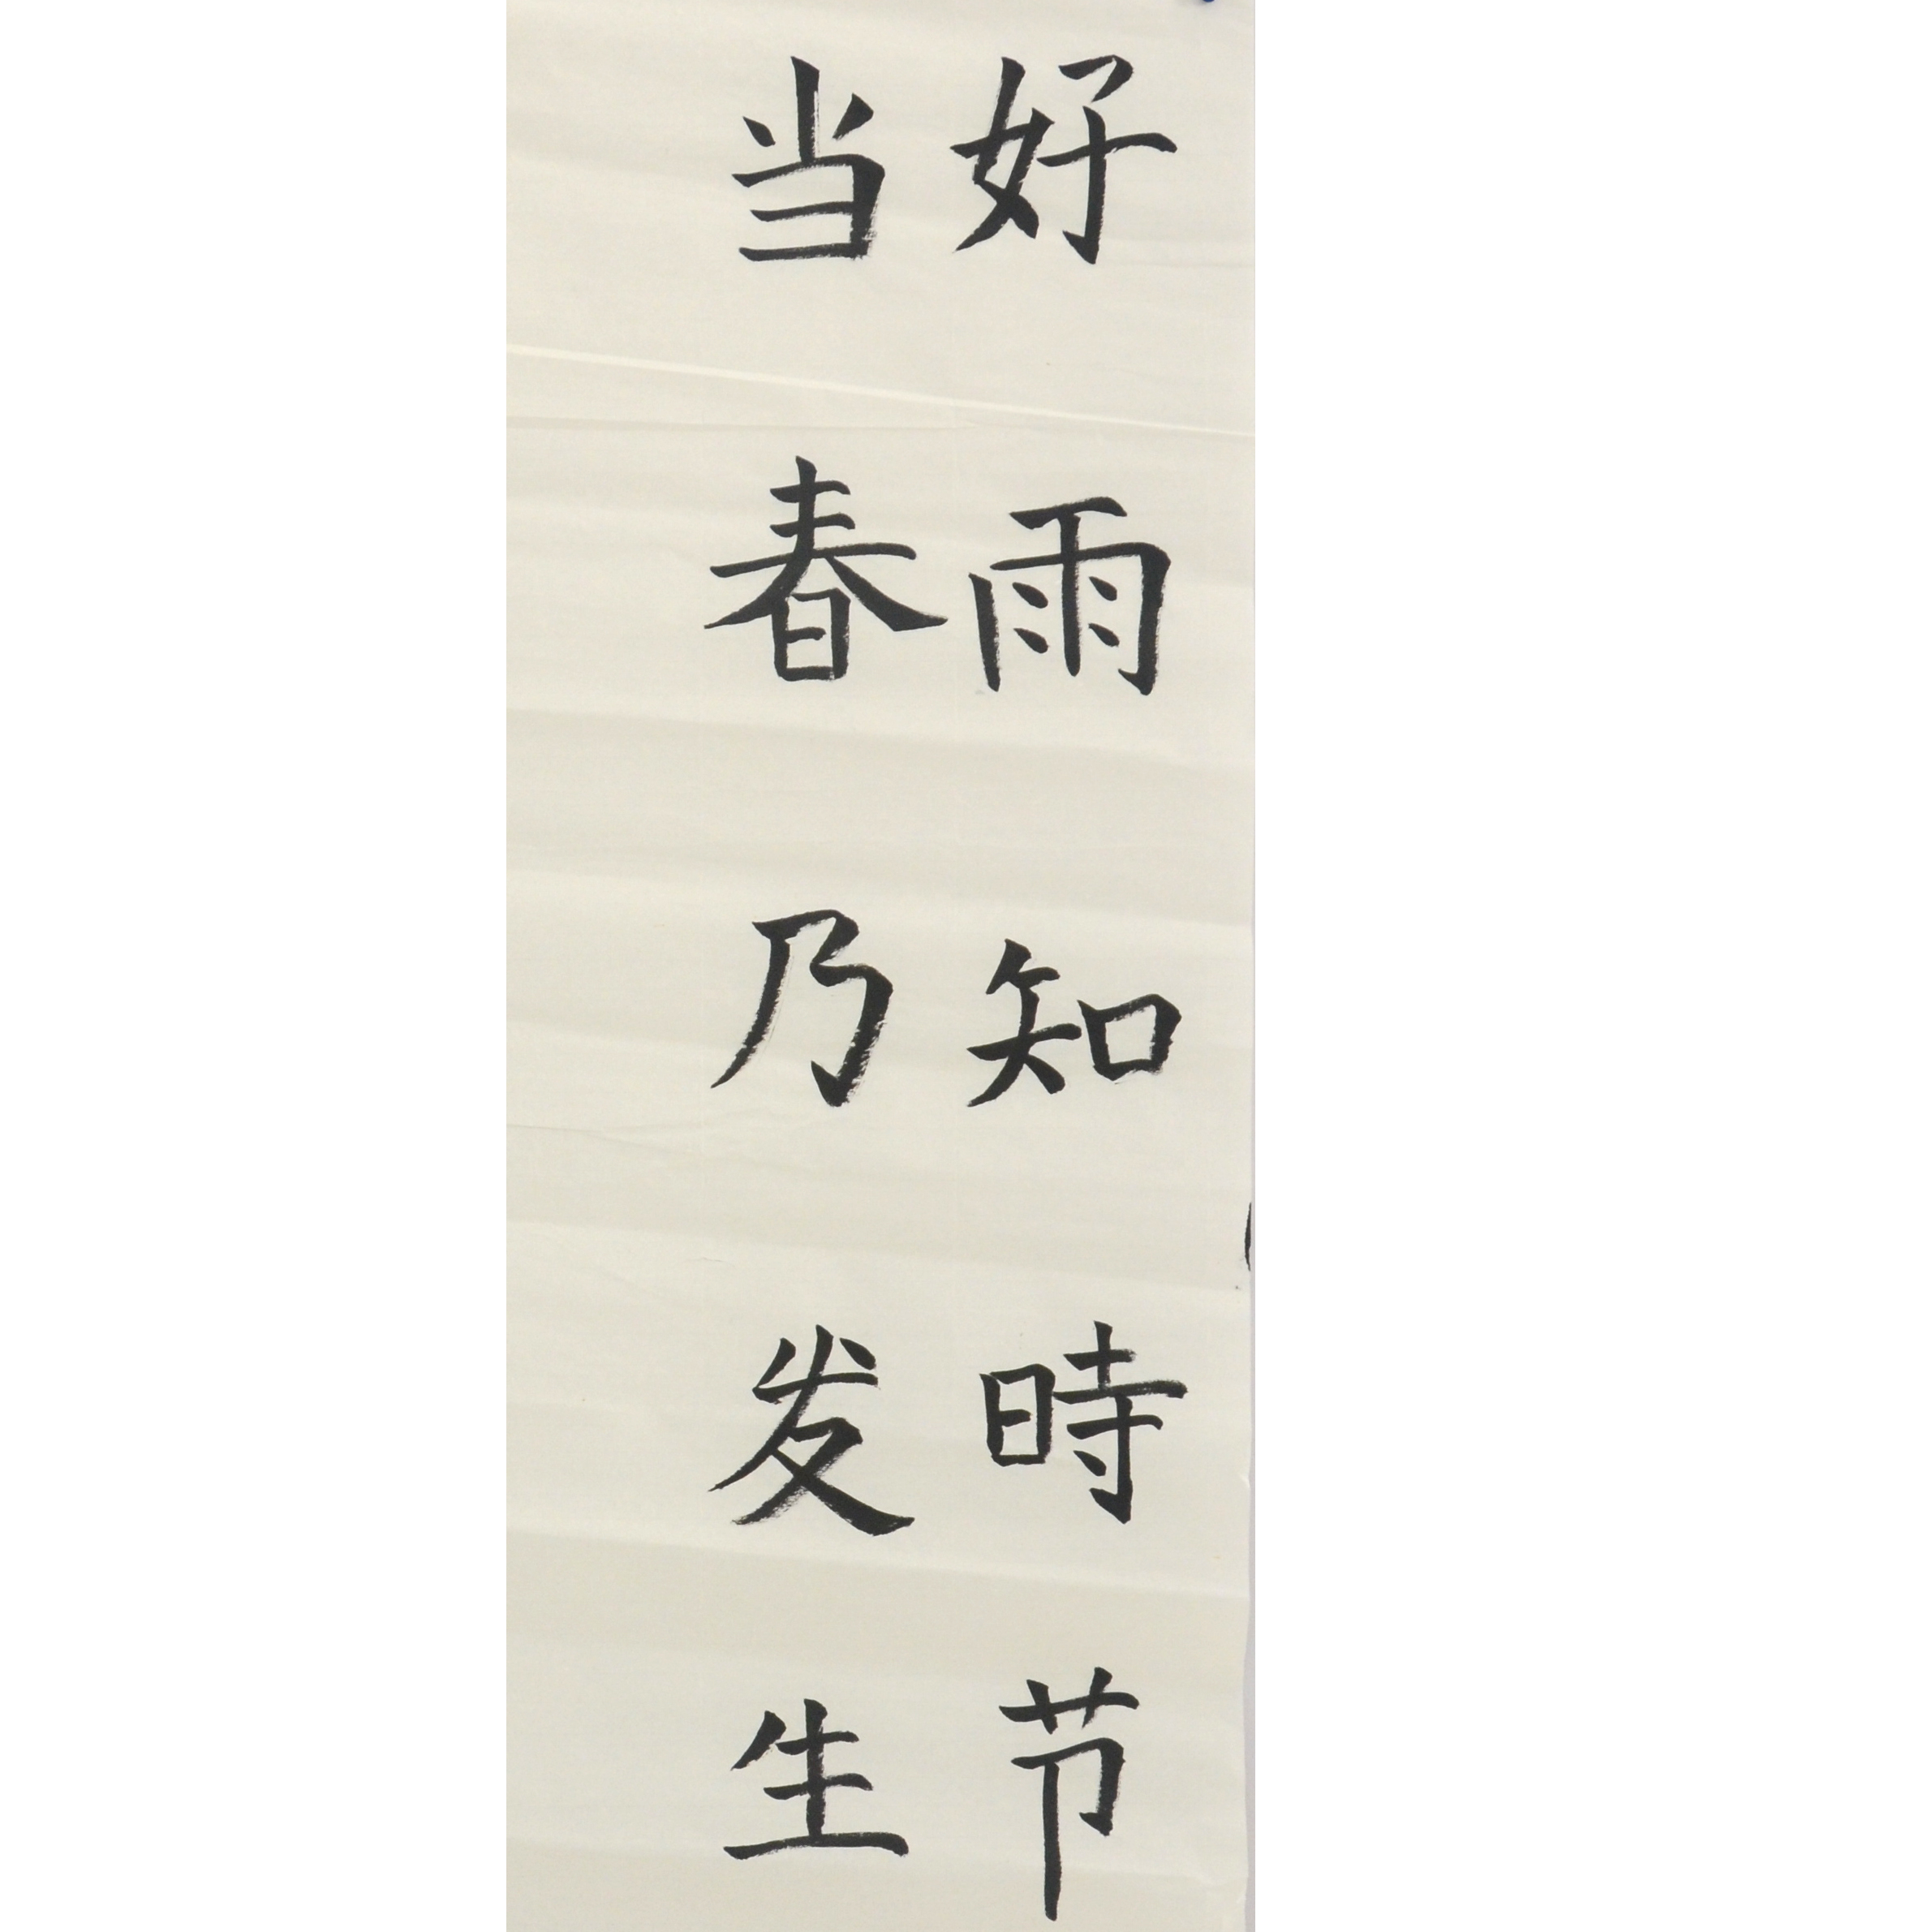 好雨知時节
当春乃发生